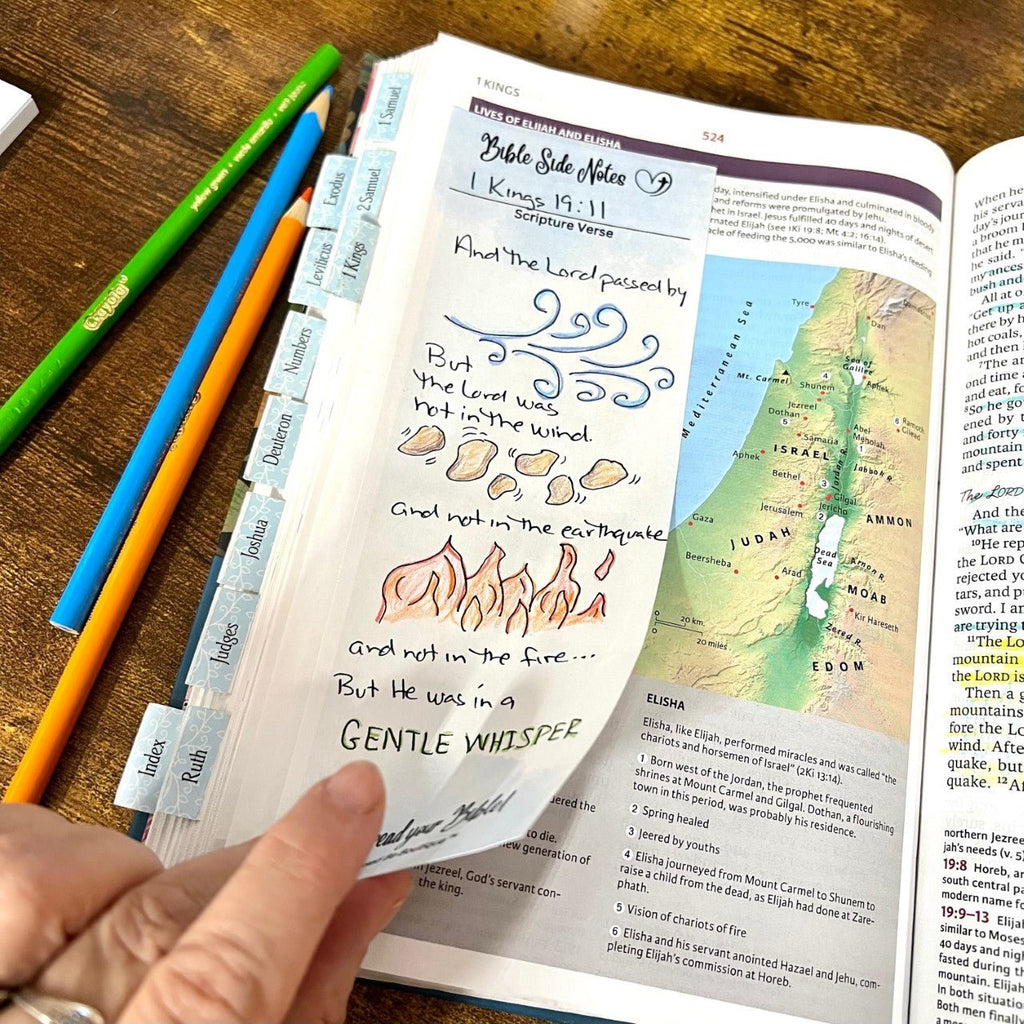 yellow green • verde amarillo • vert jaune
Crayola
1 Samuel
Exodus
2 Samuel
Leviticus
1 Kings
Numbers
Deuteron
Joshua
Judges
Index
Ruth
1 KINGS
524
LIVES OF ELIJAH AND ELISHA
day, intensified under Elisha and culminated in bloody
and reforms were promulgated by Jehu.
het in Israel. Jesus fulfilled 40 days and nights of desert
rnated Elijah (see 1Ki 19:8; Mt 4:2; 16:14).
acle of feeding the 5,000 was similar to Elisha's feeding
Bible Side Notes
1 Kings 19:11
Scripture Verse
And the Lord passed by
But
the Lord was
not in the wind.
and not in the earthquake
and not in the fire...
But He was in a
GENTLE WHISPER
read your Bible!
Mediterranean Sea
Tyre
Dan
Sea of
Galilee
Mt. Carmel
4
Shunem
Aphek
Jezreel
Dothan
5
6 Ramoth
Gilead
Samaria
Abel
Meholah
1
Aphek
ISRAEL
Jordan R.
Jabbok R.
Bethel
3
Gilgal
Jericho
2
Jerusalem
AMMON
Gaza
JUDAH
Dead
Sea
Arnon R.
Beersheba
Arad
MOAB
Kir Hareseth
Zered R.
EDOM
0 20 km.
0 20 miles
ELISHA
Elisha, like Elijah, performed miracles and was called "the
chariots and horsemen of Israel" (2Ki 13:14).
1 Born west of the Jordan, the prophet frequented
shrines at Mount Carmel and Gilgal. Dothan, a flourishing
town in this period, was probably his residence.
2 Spring healed
3 Jeered by youths
4 Elisha journeyed from Mount Carmel to Shunem to
raise a child from the dead, as Elijah had done at Zare-
phath.
5 Vision of chariots of fire
6 Elisha and his servant anointed Hazael and Jehu, com-
pleting Elijah's commission at Horeb.
dered the
to die.
new generation of
n Jezreel, God's servant con-
the king.
When he
his serva
day's jour
a broom b
that he m
he said. "
my ances
bush and
All at o
"Get up a
there by h
hot coals,
and then l
7The an
ond time a
and eat, fo
8So he go
ened by t
and forty
mountain
and spent
The LORD
And the
"What are
10He rep
the LORD G
rejected yo
tars, and pu
sword. I am
are trying t
11The Lo
mountain
the LORD is
Then a g
mountains
fore the Lo
wind. Afte
quake, but
quake. 12Af
northern Jezre
jah's needs (v. 5
19:8 Horeb, an
south central pa
modern name fo
19:9–13 Elijah
similar to Moses
40 days and nigh
fasted during th
mountain. Elijah
In both situatio
Both men finally